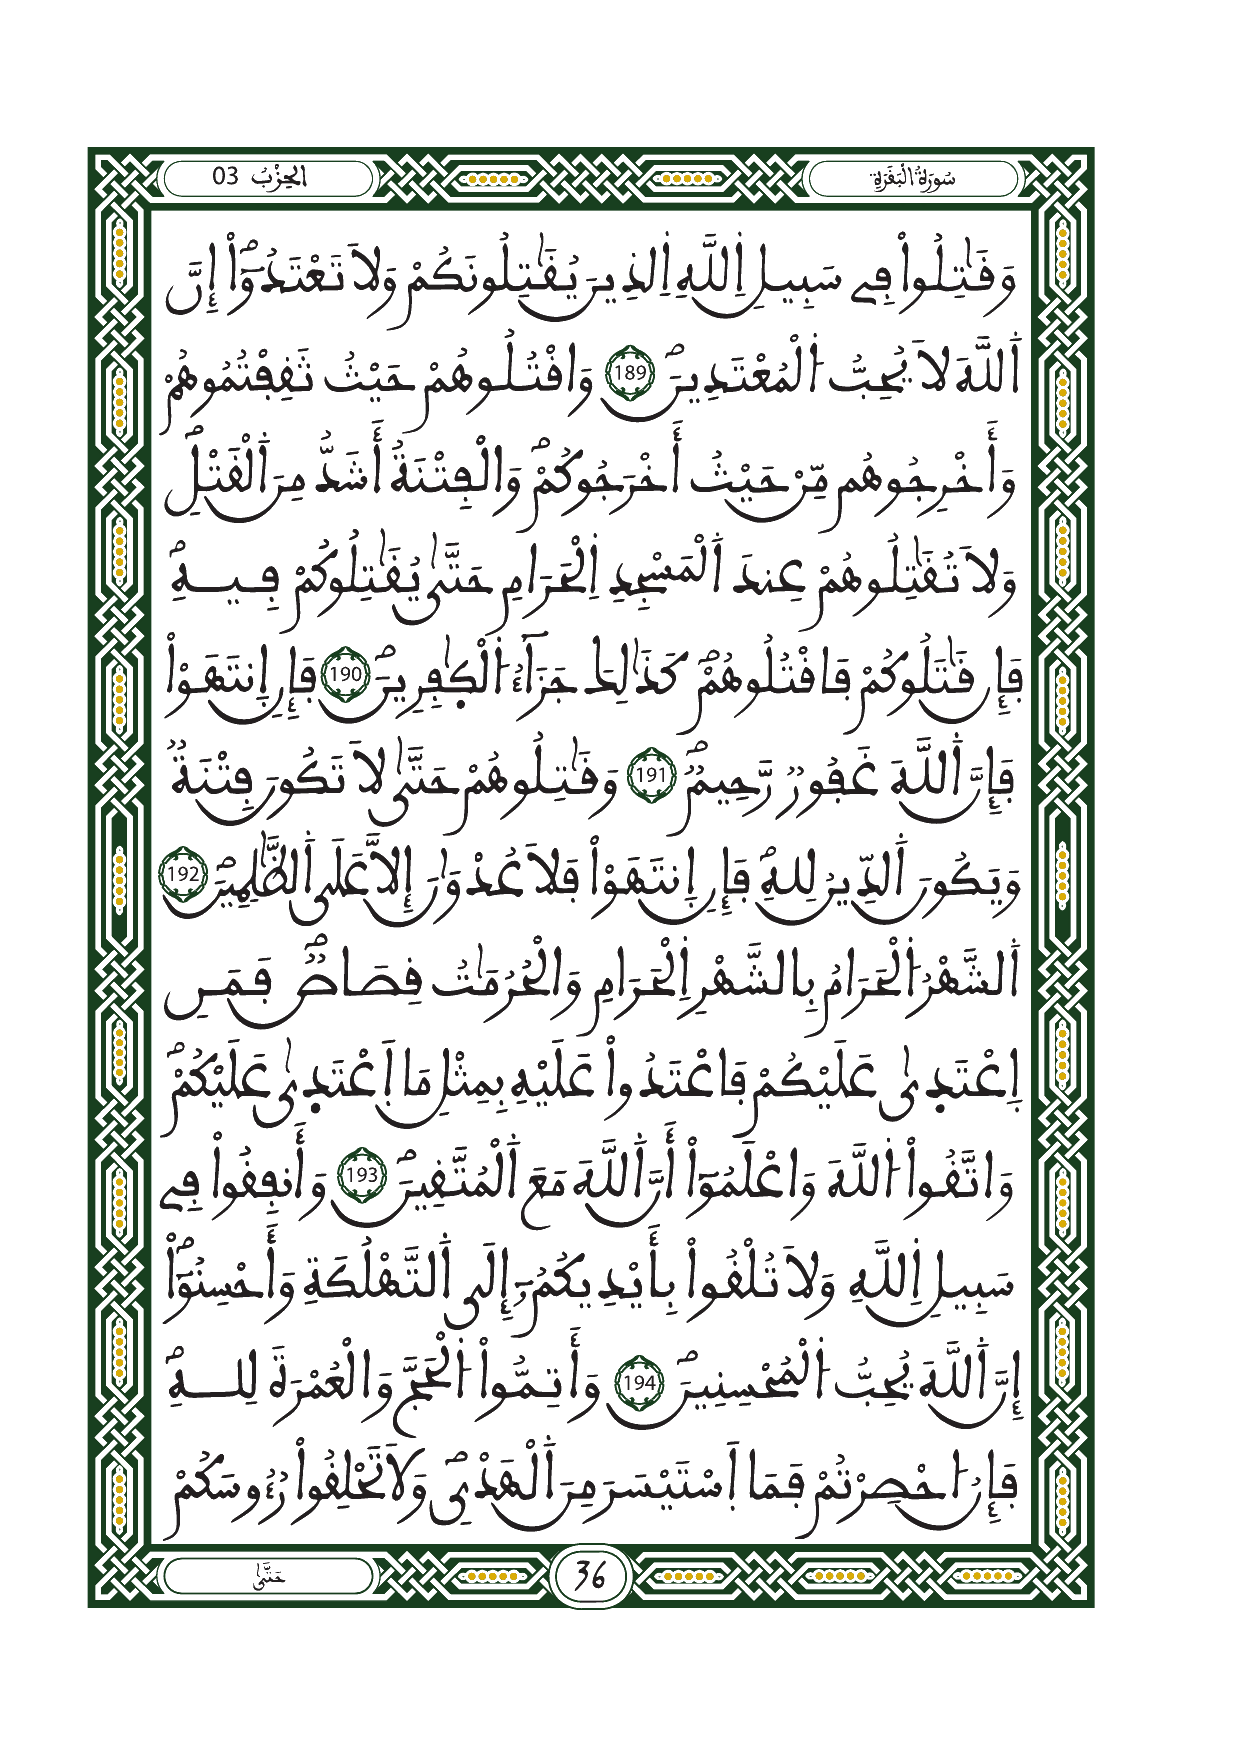 سُورَةُ الْبَقَرَةِ
الحِزْبُ 03
وَقَٰتِلُواْ فِے سَبِيلِ اِ۬للَّهِ اِ۬لذِينَ يُقَٰتِلُونَكُمْ وَلَا تَعْتَدُوٓاْۖ إِنَّ
اَ۬للَّهَ لَا يُحِبُّ اُ۬لْمُعْتَدِينَۖ 189 وَاقْتُلُوهُمْ حَيْثُ ثَقِفْتُمُوهُمْ
وَأَخْرِجُوهُم مِّنْ حَيْثُ أَخْرَجُوكُمْۖ وَالْفِتْنَةُ أَشَدُّ مِنَ اَ۬لْقَتْلِۖ
وَلَا تُقَٰتِلُوهُمْ عِندَ اَ۬لْمَسْجِدِ اِ۬لْحَرَامِ حَتَّىٰ يُقَٰتِلُوكُمْ فِيهِۖ
فَإِن قَٰتَلُوكُمْ فَاقْتُلُوهُمْۖ كَذَٰلِكَ جَزَآءُ اُ۬لْكٰ۪فِرِينَۖ 190 فَإِنِ اِ۪نتَهَوْاْ
فَإِنَّ اَ۬للَّهَ غَفُورٌ رَّحِيمٌۖ 191 وَقَٰتِلُوهُمْ حَتَّىٰ لَا تَكُونَ فِتْنَةٌ
وَيَكُونَ اَ۬لدِّينُ لِلهِۖ فَإِنِ اِ۪نتَهَوْاْ فَلَا عُدْوَٰنَ إِلَّا عَلَى اَ۬لظَّٰلِمِينَۖ 192
اَ۬لشَّهْرُ اُ۬لْحَرَامُ بِالشَّهْرِ اِ۬لْحَرَامِ وَالْحُرُمَٰتُ قِصَاصٌۖ فَمَنِ
اِ۪عْتَد۪ىٰ عَلَيْكُمْ فَاعْتَدُواْ عَلَيْهِ بِمِثْلِ مَا اَ۪عْتَد۪ىٰ عَلَيْكُمْۖ
وَاتَّقُواْ اُ۬للَّهَ وَاعْلَمُوٓاْ أَنَّ اَ۬للَّهَ مَعَ اَ۬لْمُتَّقِينَۖ 193 وَأَنفِقُواْ فِے
سَبِيلِ اِ۬للَّهِ وَلَا تُلْقُواْ بِأَيْدِيكُمُۥٓ إِلَى اَ۬لتَّهْلُكَةِ وَأَحْسِنُوٓاْۖ
إِنَّ اَ۬للَّهَ يُحِبُّ اُ۬لْمُحْسِنِينَۖ 194 وَأَتِمُّواْ اُ۬لْحَجَّ وَالْعُمْرَةَ لِلهِۖ
فَإِنُ ا۟حْصِرْتُمْ فَمَا اَ۪سْتَيْسَرَ مِنَ اَ۬لْهَدْيِۖ وَلَا تَحْلِقُواْ رُءُوسَكُمْ
حَتَّىٰ
36